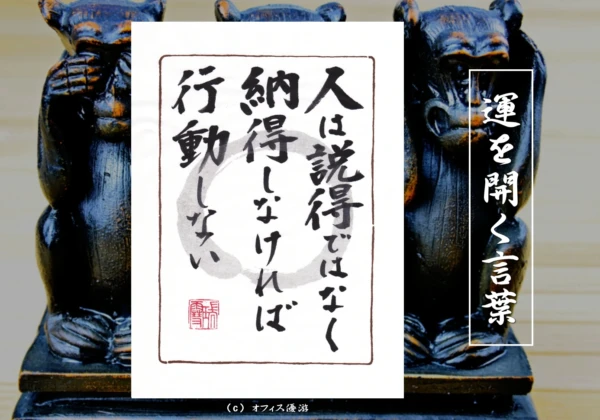 人は説得ではなく
納得しなければ
行動しない
運を開く言葉
(c) オフィス優游